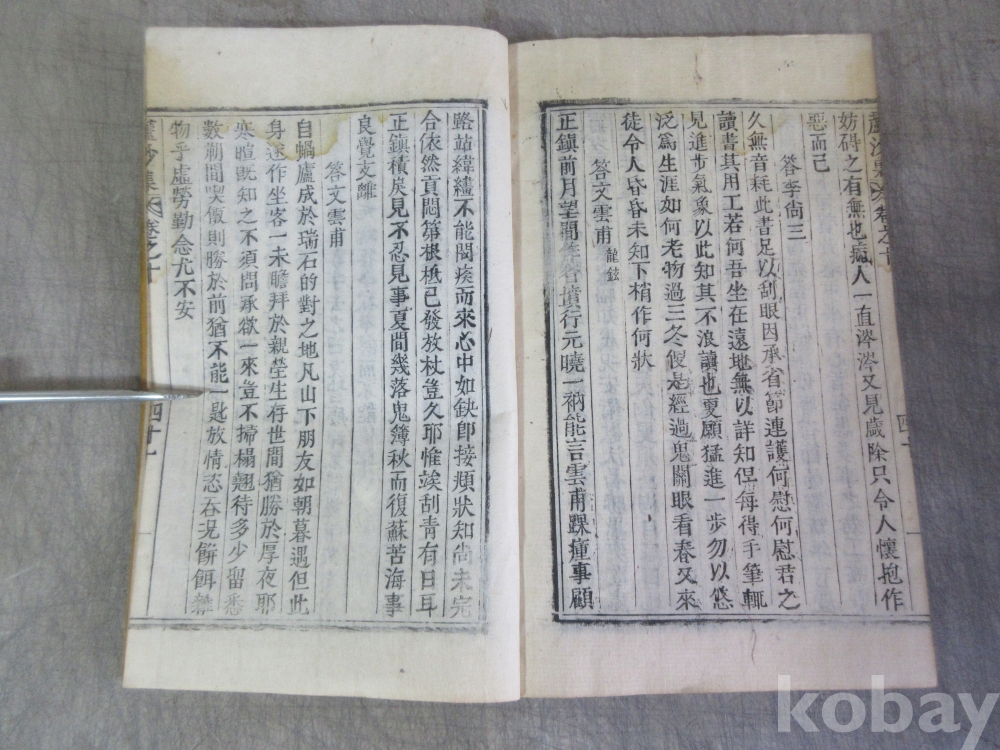 蘆沙集 卷之十
妨碍之有無也瘋人一直涔涔又見歲除只令人懷抱作
惡而已
答李尙三
久無音耗此書足以刮眼因承省節連護何慰何慰君之
讀書其用工若何吾坐在遠地無以詳知但每得手筆輒
見進步氣象以此知其不浪讀也更願猛進一步勿以悠
泛爲生涯如何老物過三冬便是經過鬼關眼看春又來
徒令人昏昏未知下梢作何狀
答文雲甫 龍鉉
正鎭前月望間 行元曉一衲能言雲甫踝瘇事顧
路站緯繣不能闖候而來心中如缺卽接頪狀知尙未完
合依然貢悶第根柢已發放杖豈久耶惟竢刮靑有日耳
正鎭積戾見不忍見事夏間幾落鬼簿秋而復蘇苦海事
良覺支離
答文雲甫
自蝸廬成於瑞石的對之地凡山下朋友如朝暮遇但此
身遂作坐客一未瞻拜於親塋生存世間猶勝於厚夜耶
寒暄旣知之不須問承欲一來豈不掃榻翹待多少留悉
數朔間喫飯則勝於前猶不能一匙放情恣吞况餠餌雜
物乎虛勞勤念尤不安
蘆沙集 卷之十
四十一
kobay